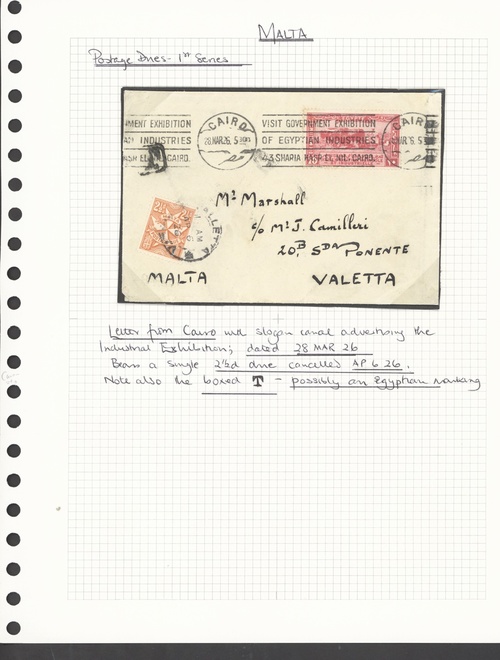 MALTA
Postage Dues - 1st Series
MENT EXHIBITION
INDUSTRIES
KASR EL NIL CAIRO.
CAIRO
28 MAR 26. 5
VISIT GOVERNMENT EXHIBITION
OF EGYPTIAN INDUSTRIES
43 SHARIA KASR EL NIL, CAIRO.
CAIRO
MAR 26. 5
T
Mr Marshall
c/o Mr J. Camilleri
20B Sda Ponente
MALTA VALETTA
2½
VALLETTA
AM
6
26
Letter from Cairo and slogan cancel advertising the
Industrial Exhibition; dated 28 MAR 26
Bears a single 2½d due cancelled AP 6 26.
Note also the boxed T - possibly an Egyptian marking